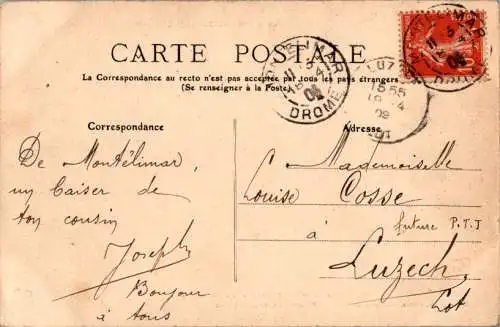 CARTE POSTALE
La Correspondance au recto n'est pas acceptée par tous les pays étrangers
(Se renseigner à la Poste)
MONTELIMAR
DROME
LUZECH
15 55
LOT
Correspondance
Adresse
De Montélimar
un baiser de
ton cousin
Joseph
Bonjour
à tous
Mademoiselle
Louise Cosse
future P.T.T
à
Luzech
Lot